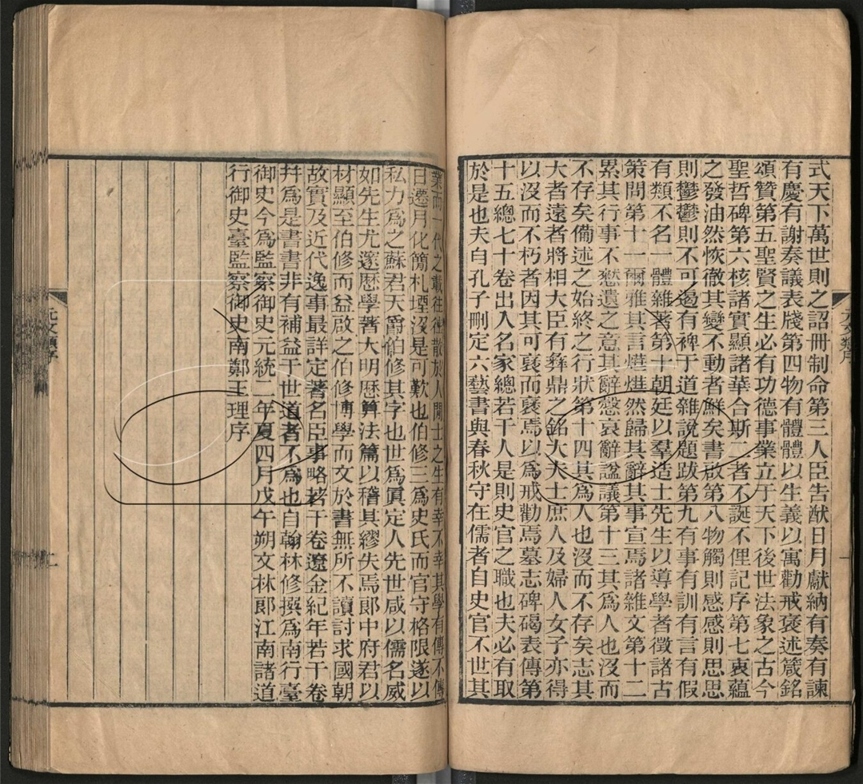 式天下萬世則之詔冊制命第三人臣告猷日月獻納有奏有諫
有慶有謝奏議表牋第四物有體體以生義以寓勸戒褒述箴銘
頌贊第五聖賢之生必有功德事業立于天下後世法象之古今
聖哲碑第六核諸實顯諸華合斯二者不誕不俚記序第七衷蘊
之發油然恢徹其變不動者鮮矣書啟第八物觸則感感則思思
則鬱鬱則不可遏有裨于道雜說題跋第九有事有訓有言有假
有類不名一體雜著第十朝廷以羣造士先生以導學者徵諸古
策問第十一爾雅其言燁燁然歸其辭其事宣焉諸雜文第十二
累其行事不憗遺之意其辭慤哀辭諡議第十三其為人也沒而
不存矣備述之始終之行狀第十四其為人也沒而不存矣志其
大者遠者將相大臣有彝鼎之銘大夫士庶人及婦人女子亦得
以沒而不朽者因其可褒而褒焉以為戒勸焉墓志碑碣表傳第
十五總七十卷出入名家總若干人是則史官之職也夫必有取
於是也夫自孔子刪定六藝書與春秋守在儒者自史官不世其
元文類序
一
業而一代之載往往散於人間士之生有幸不幸其學有傳不傳
日遷月化簡札堙沒是可歎也伯修三為史氏而官守格限遂以
私力為之蘇君天爵伯修其字也世為眞定人先世咸以儒名威
如先生尤邃厯學著大明厯算法篇以稽其繆失焉郞中府君以
材顯至伯修而益啟之伯修博學而文於書無所不讀討求國朝
故實及近代逸事最詳定著名臣事略若干卷遼金紀年若干卷
幷為是書書非有補益于世道者不為也自翰林修撰為南行臺
御史今為監察御史元統二年夏四月戊午朔文林郞江南諸道
行御史臺監察御史南鄭王理序
元文類序
二